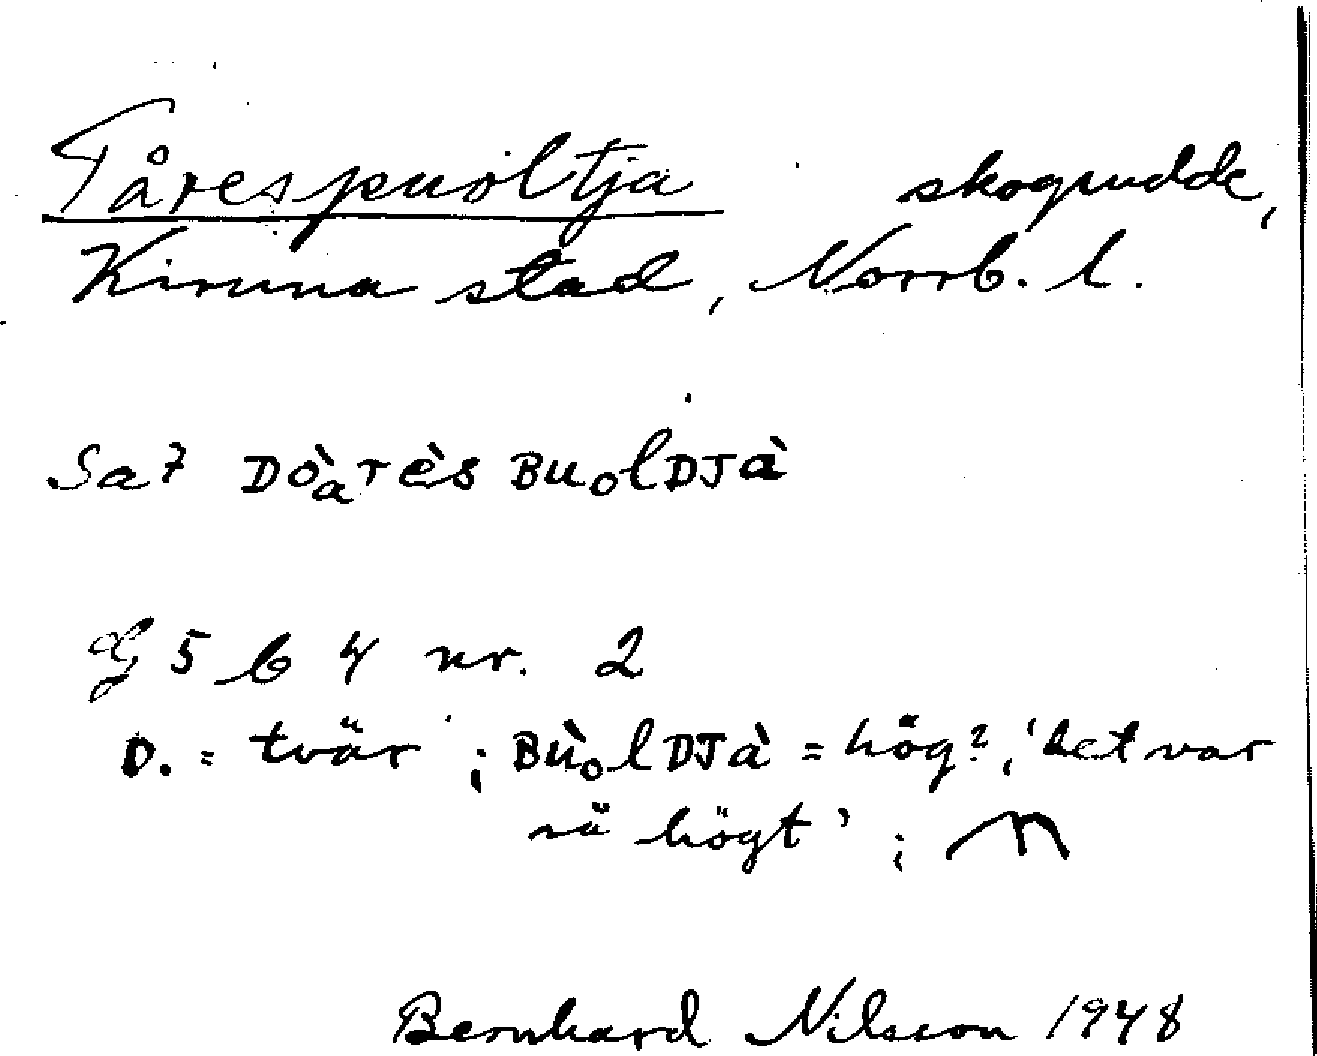 Tårespuoltja skogudde,
Kiruna stad, Norrb. l.
Sa7 DòaTès BuolDJà
G 5 b 4 nr. 2
D. = tvär ; BùolDJà = hög?, 'det var
så högt' ;
Bernhard Nilsson 1948